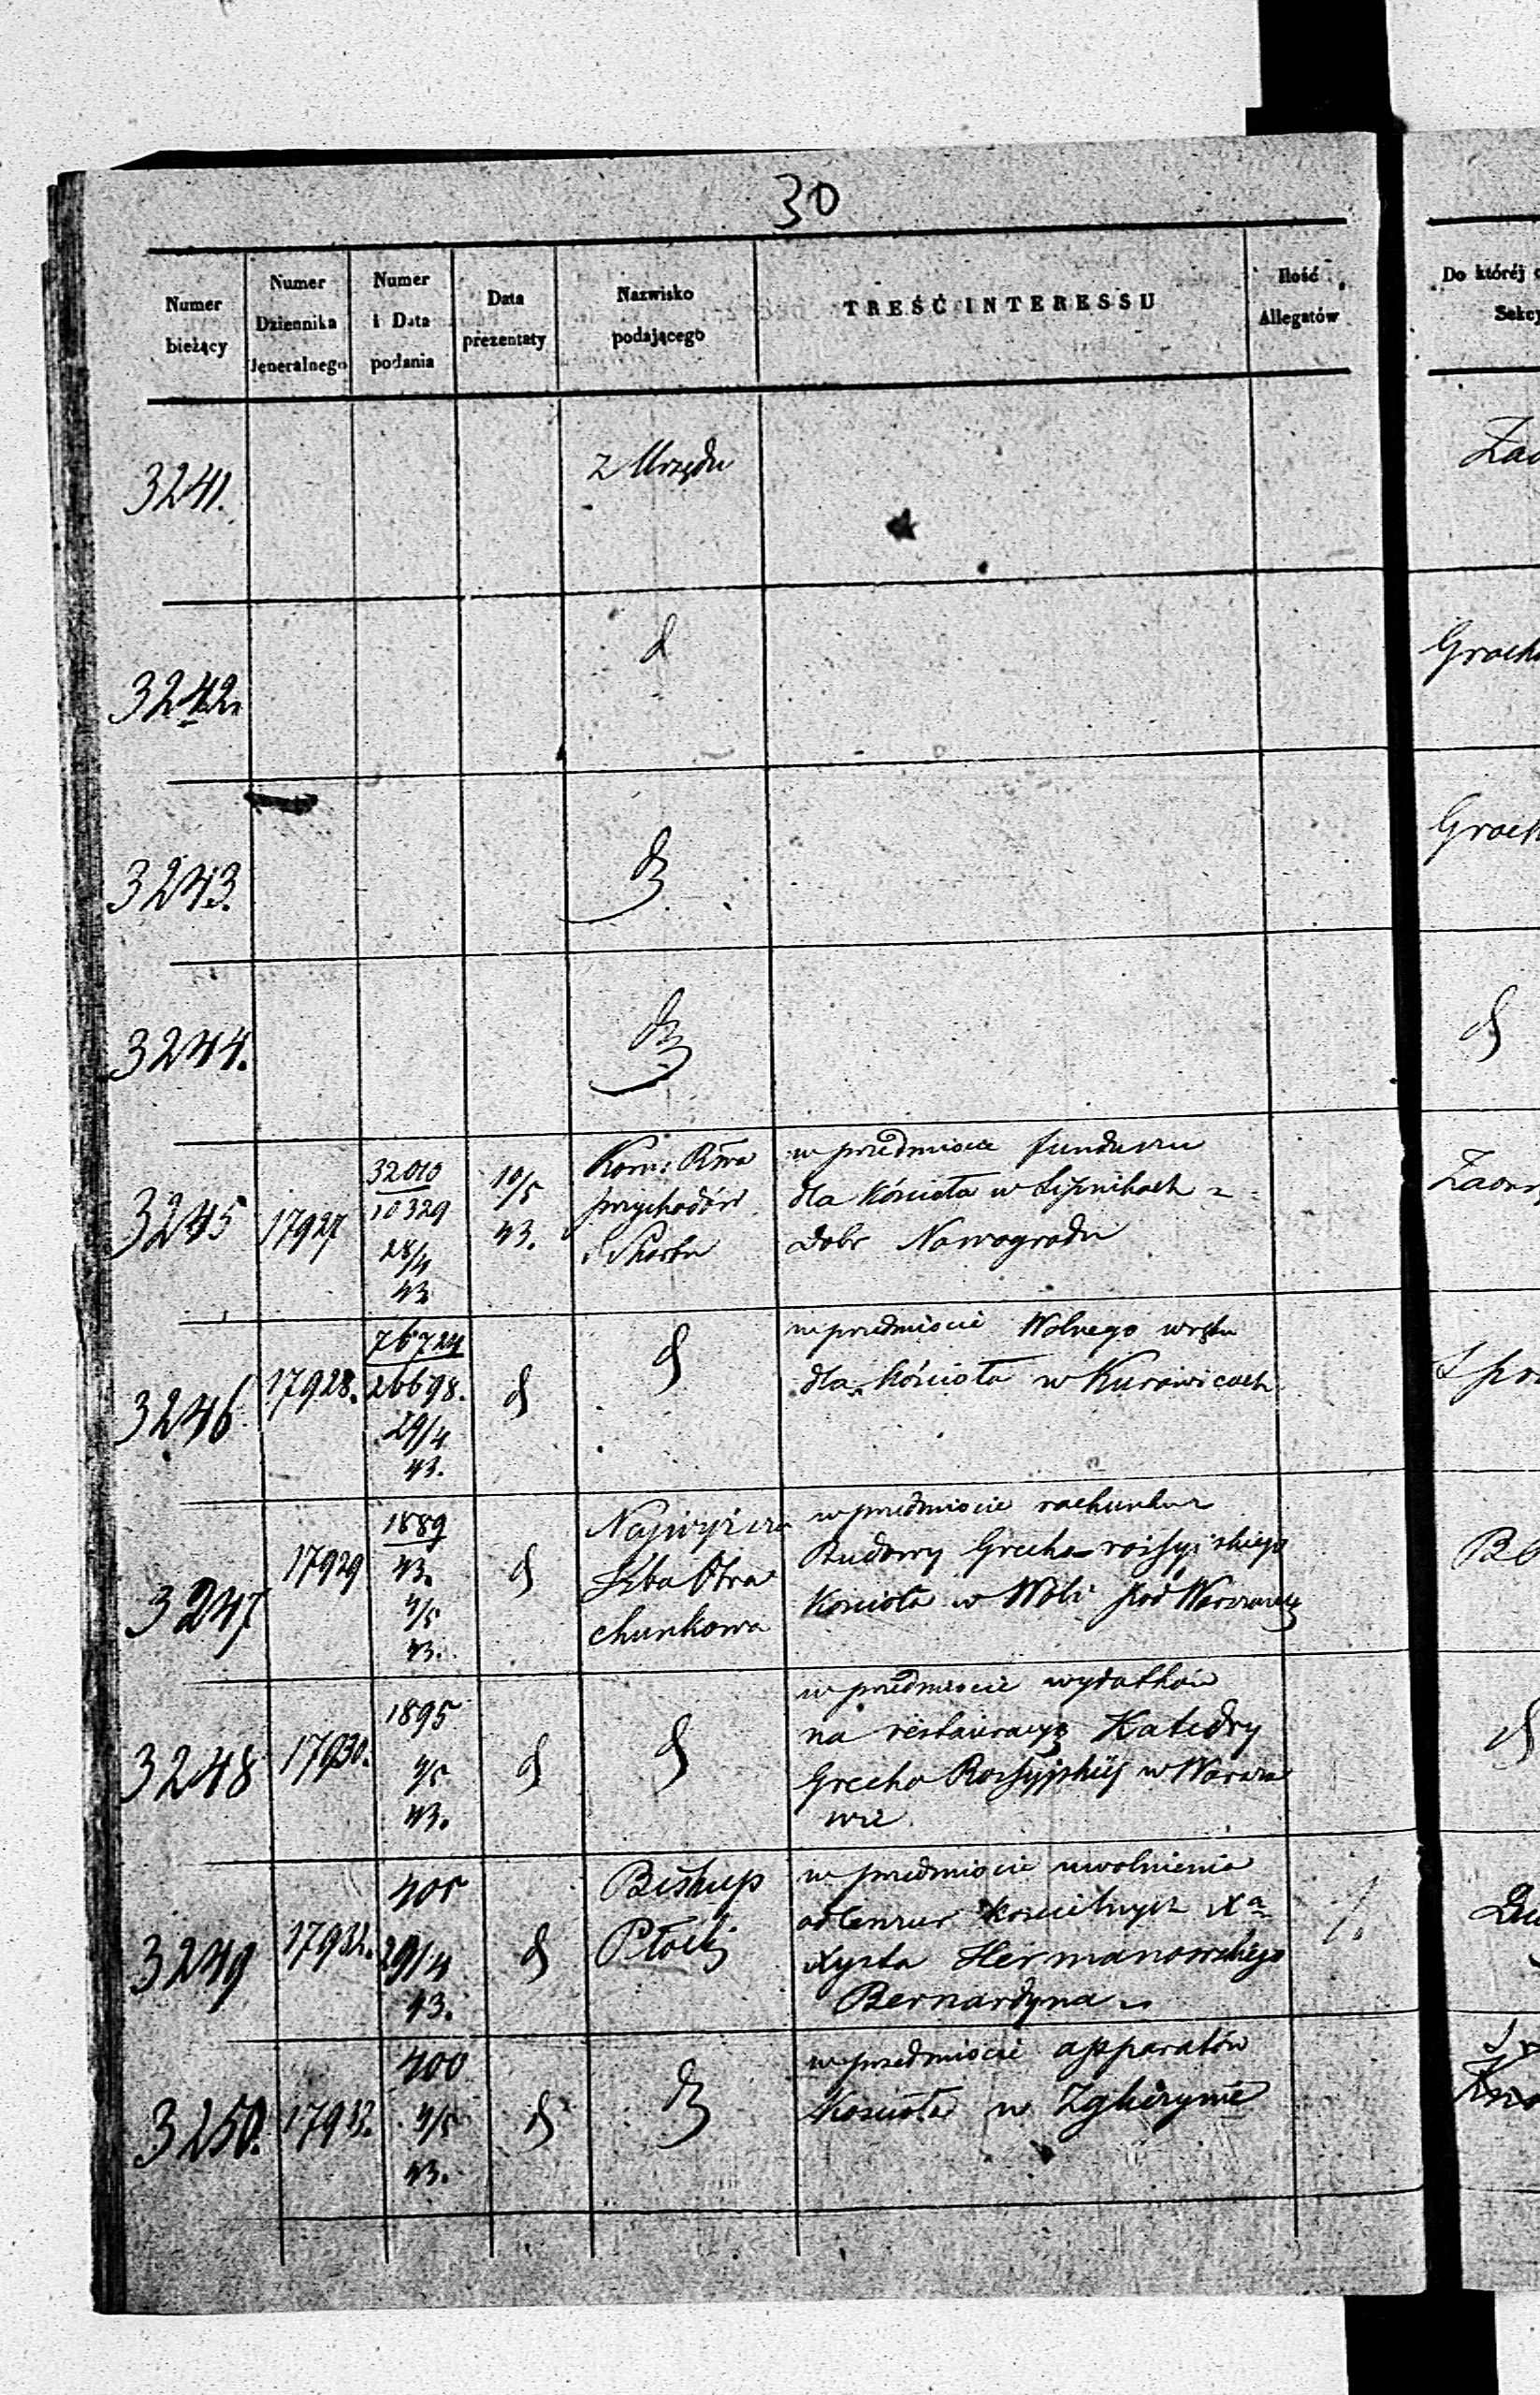 30
Numer bieżący
Numer Dziennika Jeneralnego
Numer i Data podania
Data prezentaty
Nazwisko podającego
TREŚĆ INTERESSU
Ilość Allegatów
Do któréj
3241.
z Urzędu
3242.
d
Groch
3243.
d
Groch
3244.
d
d
3245
17927
32010
10329
28/4
43
10/5
43.
Kom: Rwa
przychodów
i Skarbu
w przedmiocie funduszu
dla kościoła w Lipnikach z
Dobr Nowogrodu
3246
17928.
76724
26698.
29/4
43.
d
d
w przedmiocie Wolnego wrębu
dla kościoła w Kurowicach
3247
17929
1889
43.
4/5
43.
d
Najwyższa
Izba Obra
chunkowa
w przedmiocie rachunku z
Budowy Grecko-rossyiskiego
kościoła w Woli pod Warszawą
3248
17930.
1895
4/5
43.
d
d
w przedmiocie wydatków
na restauracyę Katedry
Grecko Rossyjskiéj w Warsza
wie
d
3249
17932.
405
29/4
43.
d
Biskup
Płocki
w przedmiocie uwolnienia
od Cenzur kościelnych Xa
Xysta Hermanowskiego
Bernardyna
1.
3250.
17933.
400
4/5
43.
d
d
w przedmiocie apparatów
kościoła w Zgierzynie